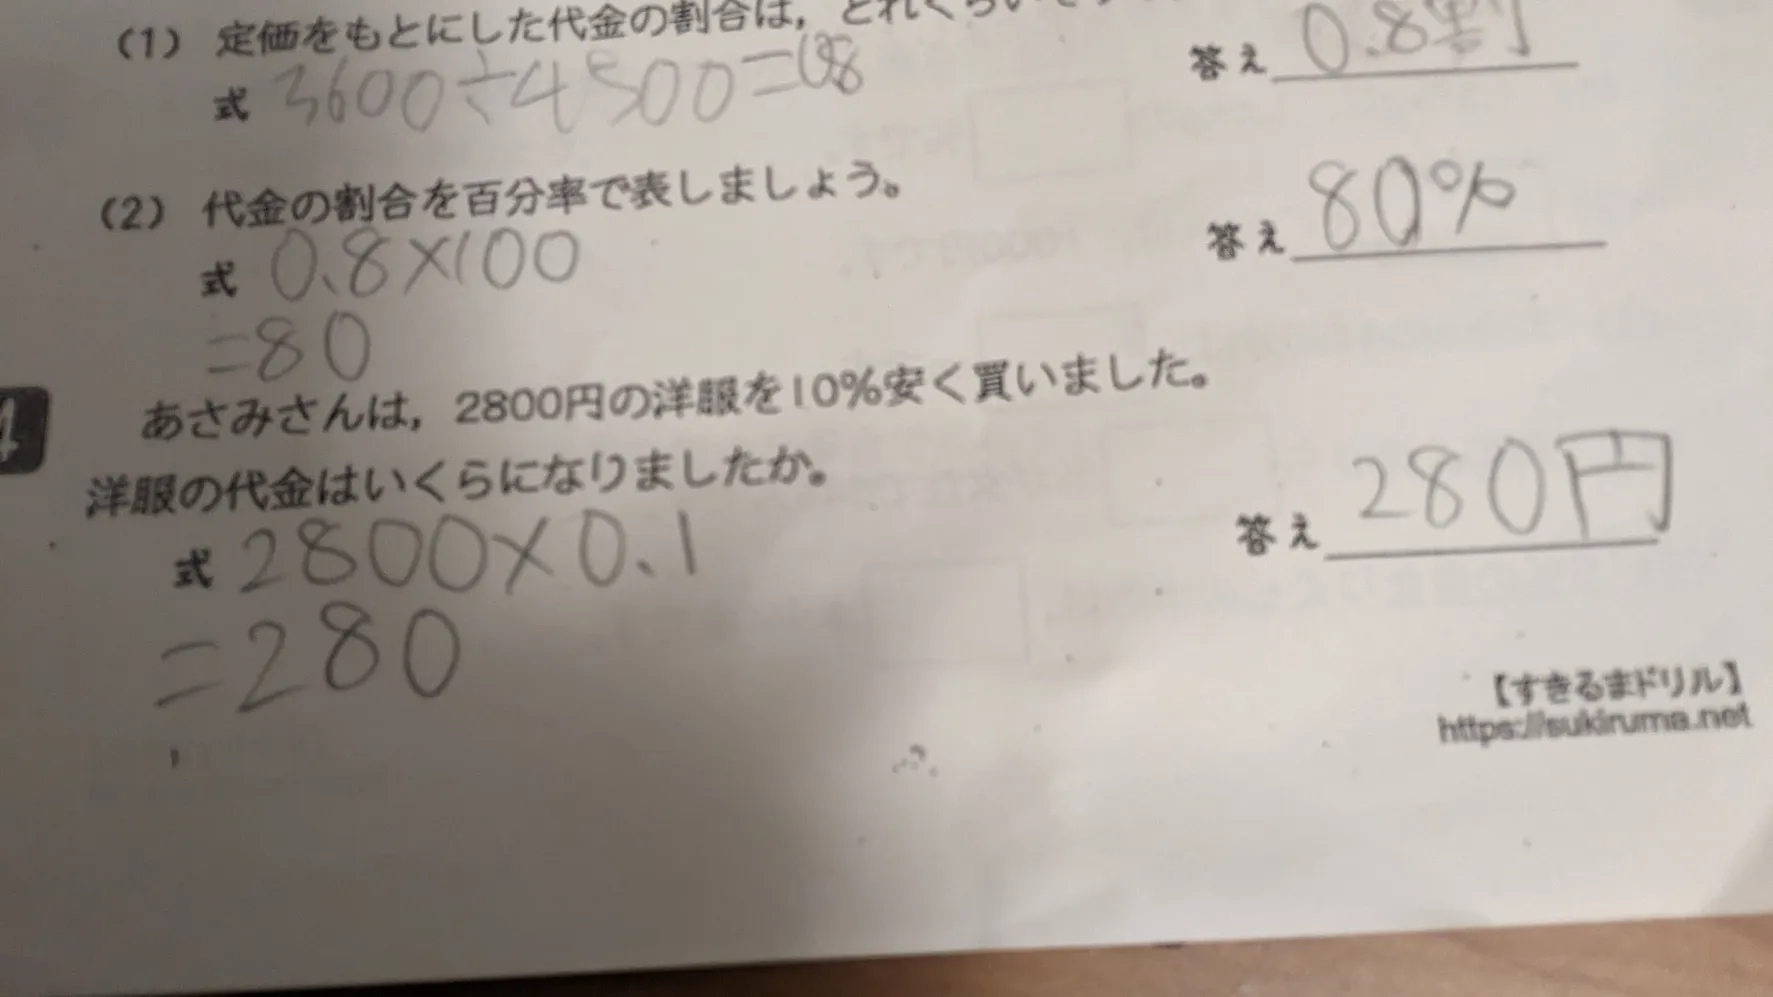 (1) 定価をもとにした代金の割合は,
式 3600÷4500=0.8
答え 0.8割
(2) 代金の割合を百分率で表しましょう。
式 0.8×100
=80
答え 80%
4 あさみさんは, 2800円の洋服を10%安く買いました。
洋服の代金はいくらになりましたか。
式 2800×0.1
=280
答え 280円
【すきるまドリル】
https://sukiruma.net